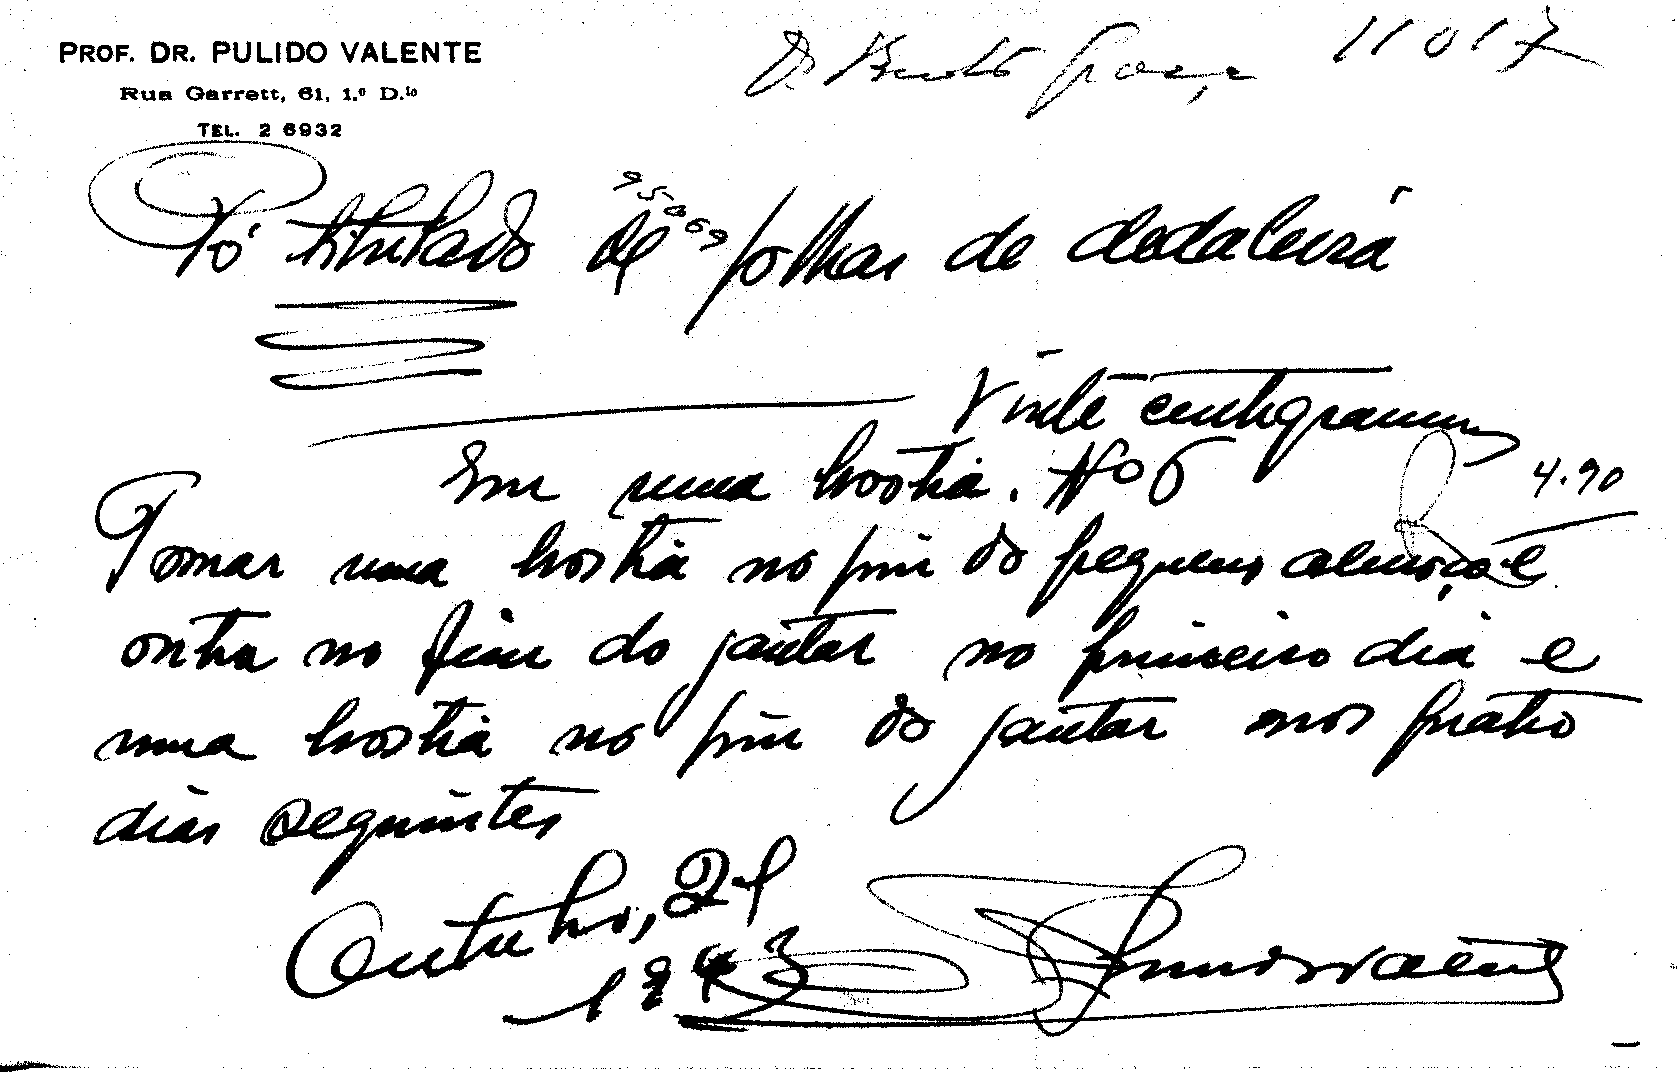 PROF. DR. PULIDO VALENTE
Rua Garrett, 61, 1.º D.to
TEL. 2 6932
Dr Bento Graça 11017
95069
Pó titulado de folhas de dedaleira
Vinte centigramas
Em uma hostia. Nº 6
4.90
Tomar uma hostia no fim do pequeno almoço e
outra no fim do jantar no primeiro dia e
uma hostia no fim do jantar nos quatro
dias seguintes
Outubro, 21
1943
Pulido Valente